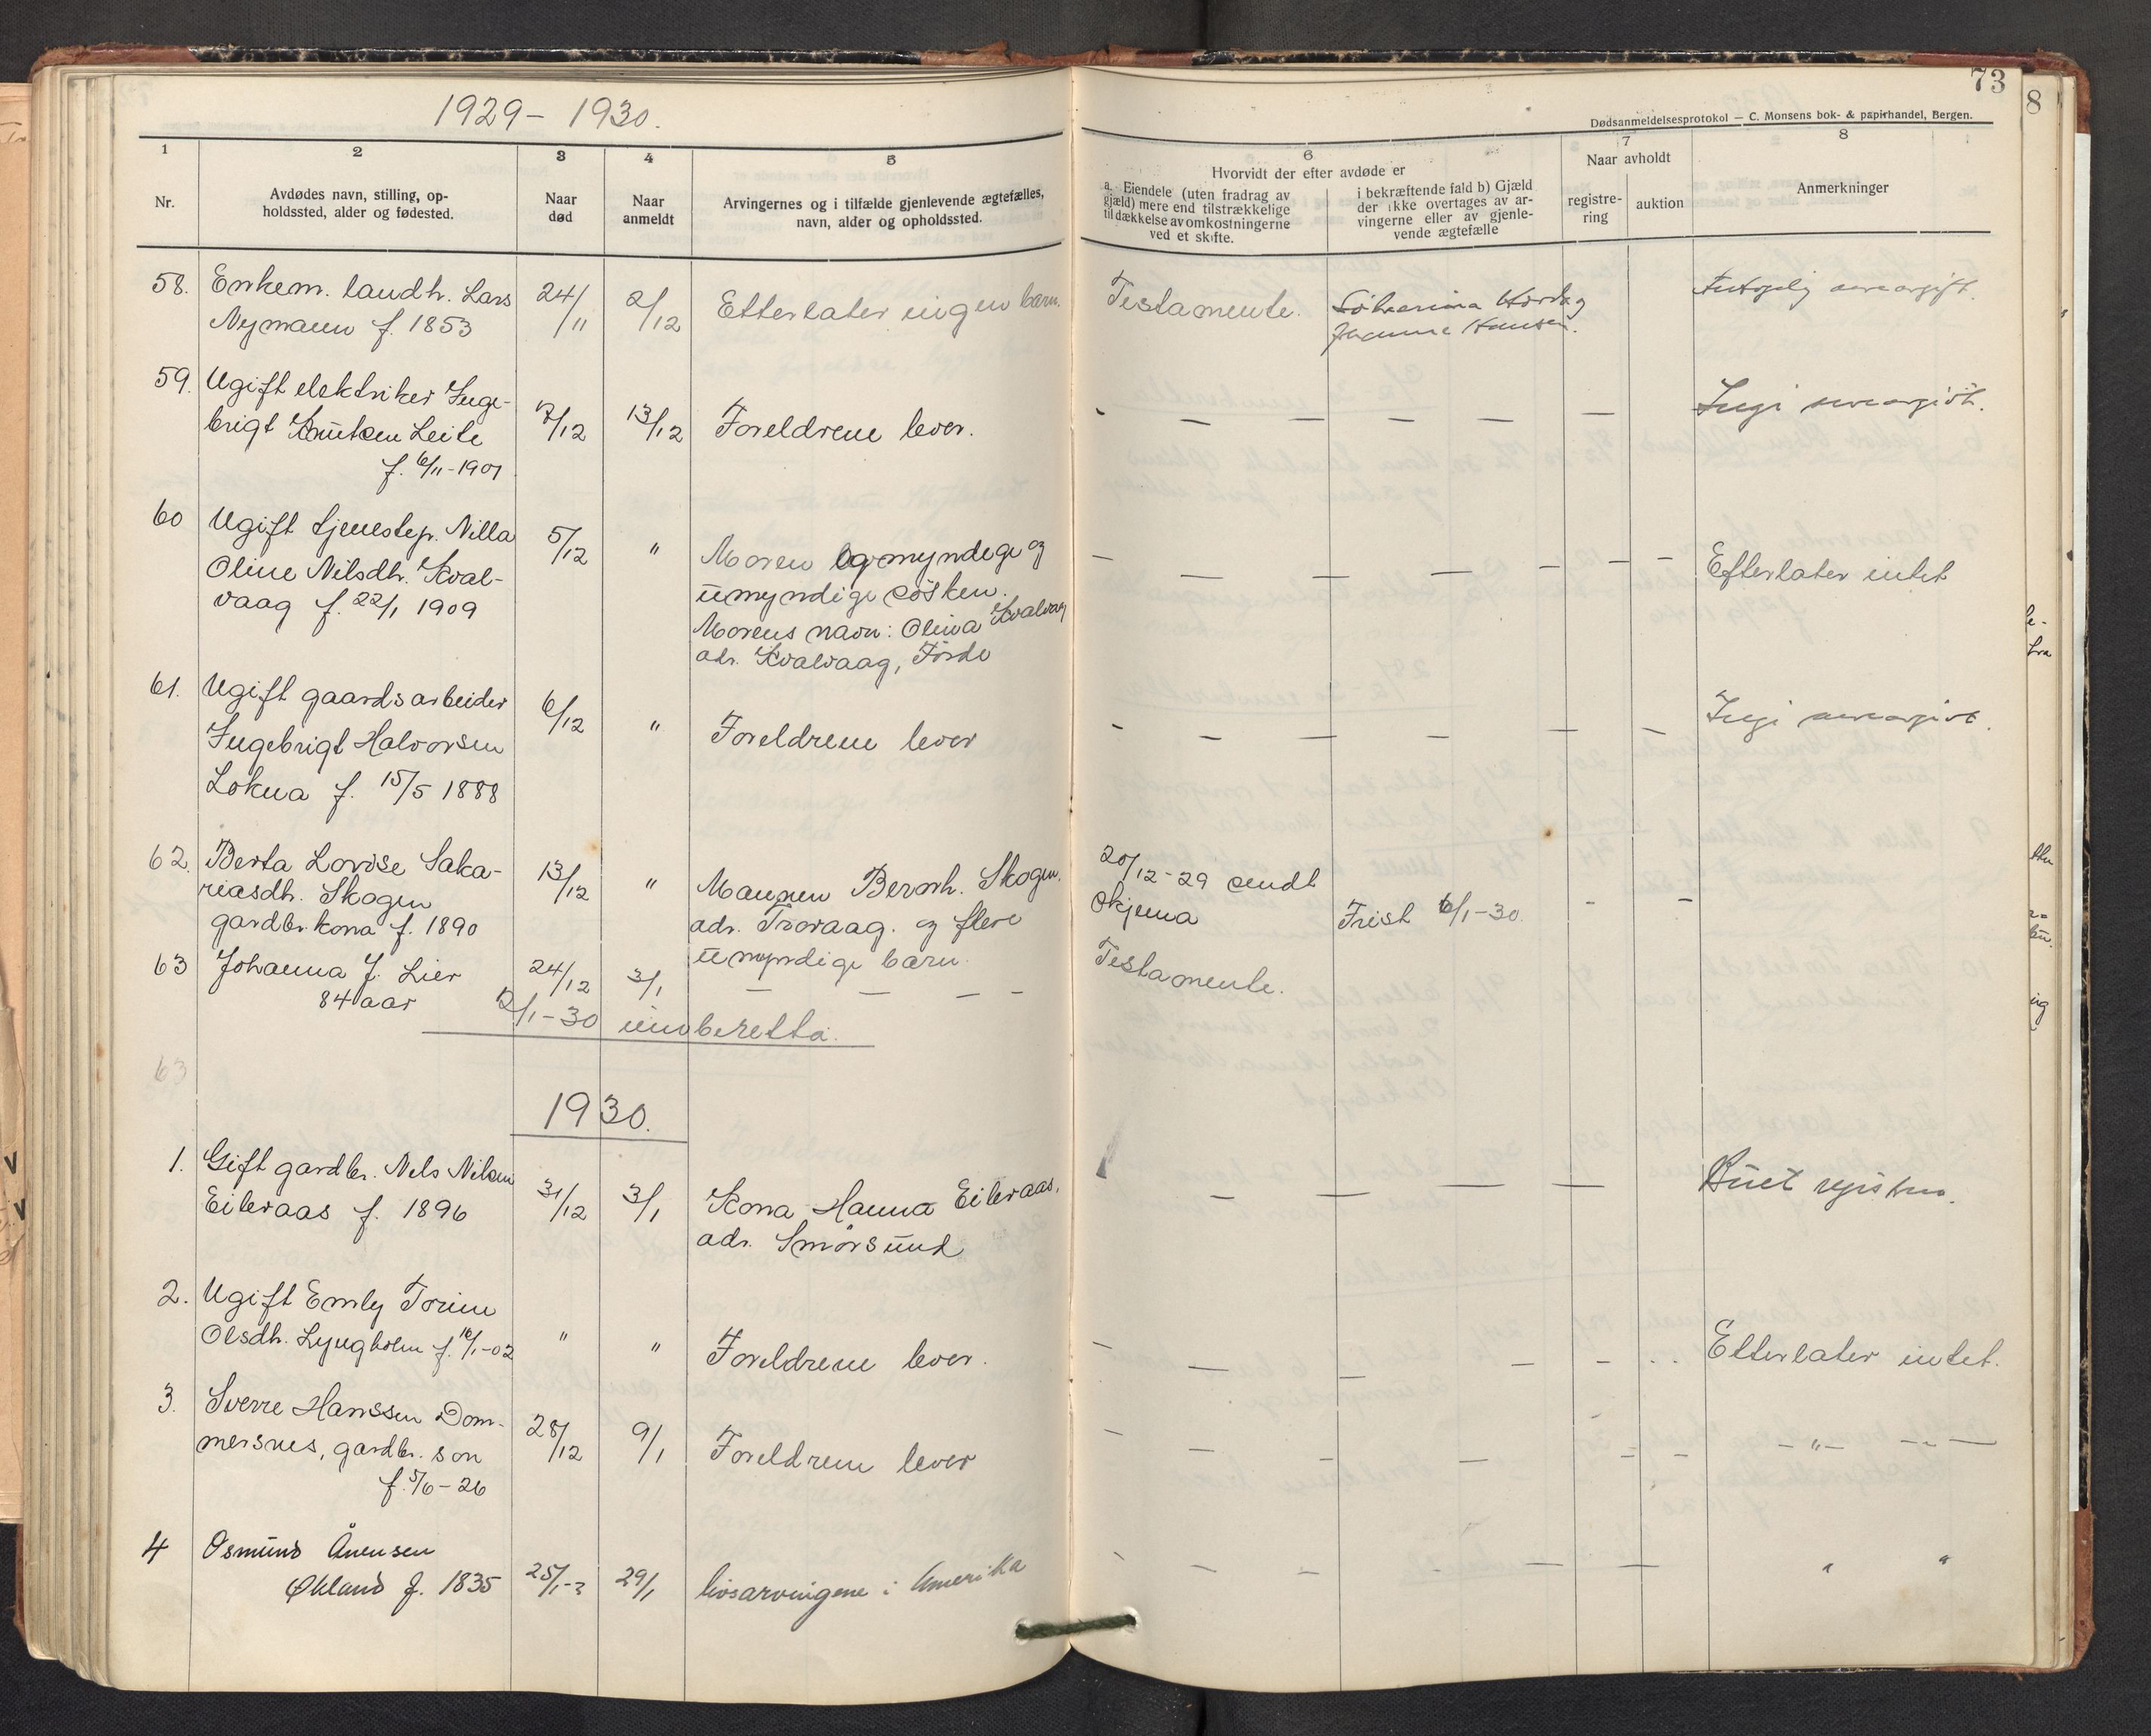 1929 – 1930.
73
8
Dødsanmeldelsesprotokol — C. Monsens bok- & papirhandel, Bergen.
1
2
3
4
5
6
7
8
Nr.
Avdødes navn, stilling, op-
holdssted, alder og fødested.
Naar
død
Naar
anmeldt
Arvingernes og i tilfælde gjenlevende ægtefælles,
navn, alder og opholdssted.
Hvorvidt der efter avdøde er
a. Eiendele (uten fradrag av
gjæld) mere end tilstrækkelige
til dækkelse av omkostningerne
ved et skifte.
i bekræftende fald b) Gjæld
der ikke overtages av ar-
vingerne eller av gjenle-
vende ægtefælle
Naar avholdt
registre-
ring
auktion
Anmerkninger
58. Enkem. landh. Lars
Nymann f. 1853
24/11
2/12
Etterlater ingen barn.
Testamente.
Johanne Hansen.
arveavgift.
59. Ugift elektriker Inge-
brigt Knutsen Leite
f. 6/11-1901
7/12
13/12
Foreldrene lever.
— — — — —
Ingi arveavgift.
60 Ugift tjenestep. Nilla
Oline Nilsdtr. Kval-
vaag f. 22/1 1909
5/12
"
Moren og myndige og
umyndige søsken.
Morens navn: Olina Kvalvaag
adr. Kvalvaag, Førde
— — — — — — —
Efterlater intet
61. Ugift gaardsarbeider
Ingebrigt Halvorsen
Lokna f. 15/5 1888
6/12
"
Foreldrene lever
- — — — — —
Ingi arveavgift.
62. Berta Lovise Saka-
riasdtr. Skogen
gardbr. kona f. 1890
13/12
"
Mannen Bernh. Skogen.
adr. Trovaag. og flere
umyndige barn.
20/12-29 sendt
skjema
Frist 6/1-30.
- -
63 Johanna J. Lier
84 aar
24/12
3/1
— — — —
Testamente.
12/1-30 innberetta.
63
1930.
1. Gift gardbr. Nels Nilsen
Eileraas f. 1896
31/12
3/1
Kona Hanna Eileraas.
adr. Smørsund
— — — —
Buet registr.
2. Ugift Emly Torine
Olsdtr. Lyngholm f. 16/1-02
"
"
Foreldrene lever.
— — — — —
Etterlater intet.
3. Sverre Hanssen Dom-
mersnes, gardbr. son
f. 5/6-26
28/12
9/1
Foreldrene lever
- — — — - -
— " — — —
4 Osmund Ånensen
Økland f. 1835
25/1
29/1
livsarvingene i Amerika
- — — — —
" "